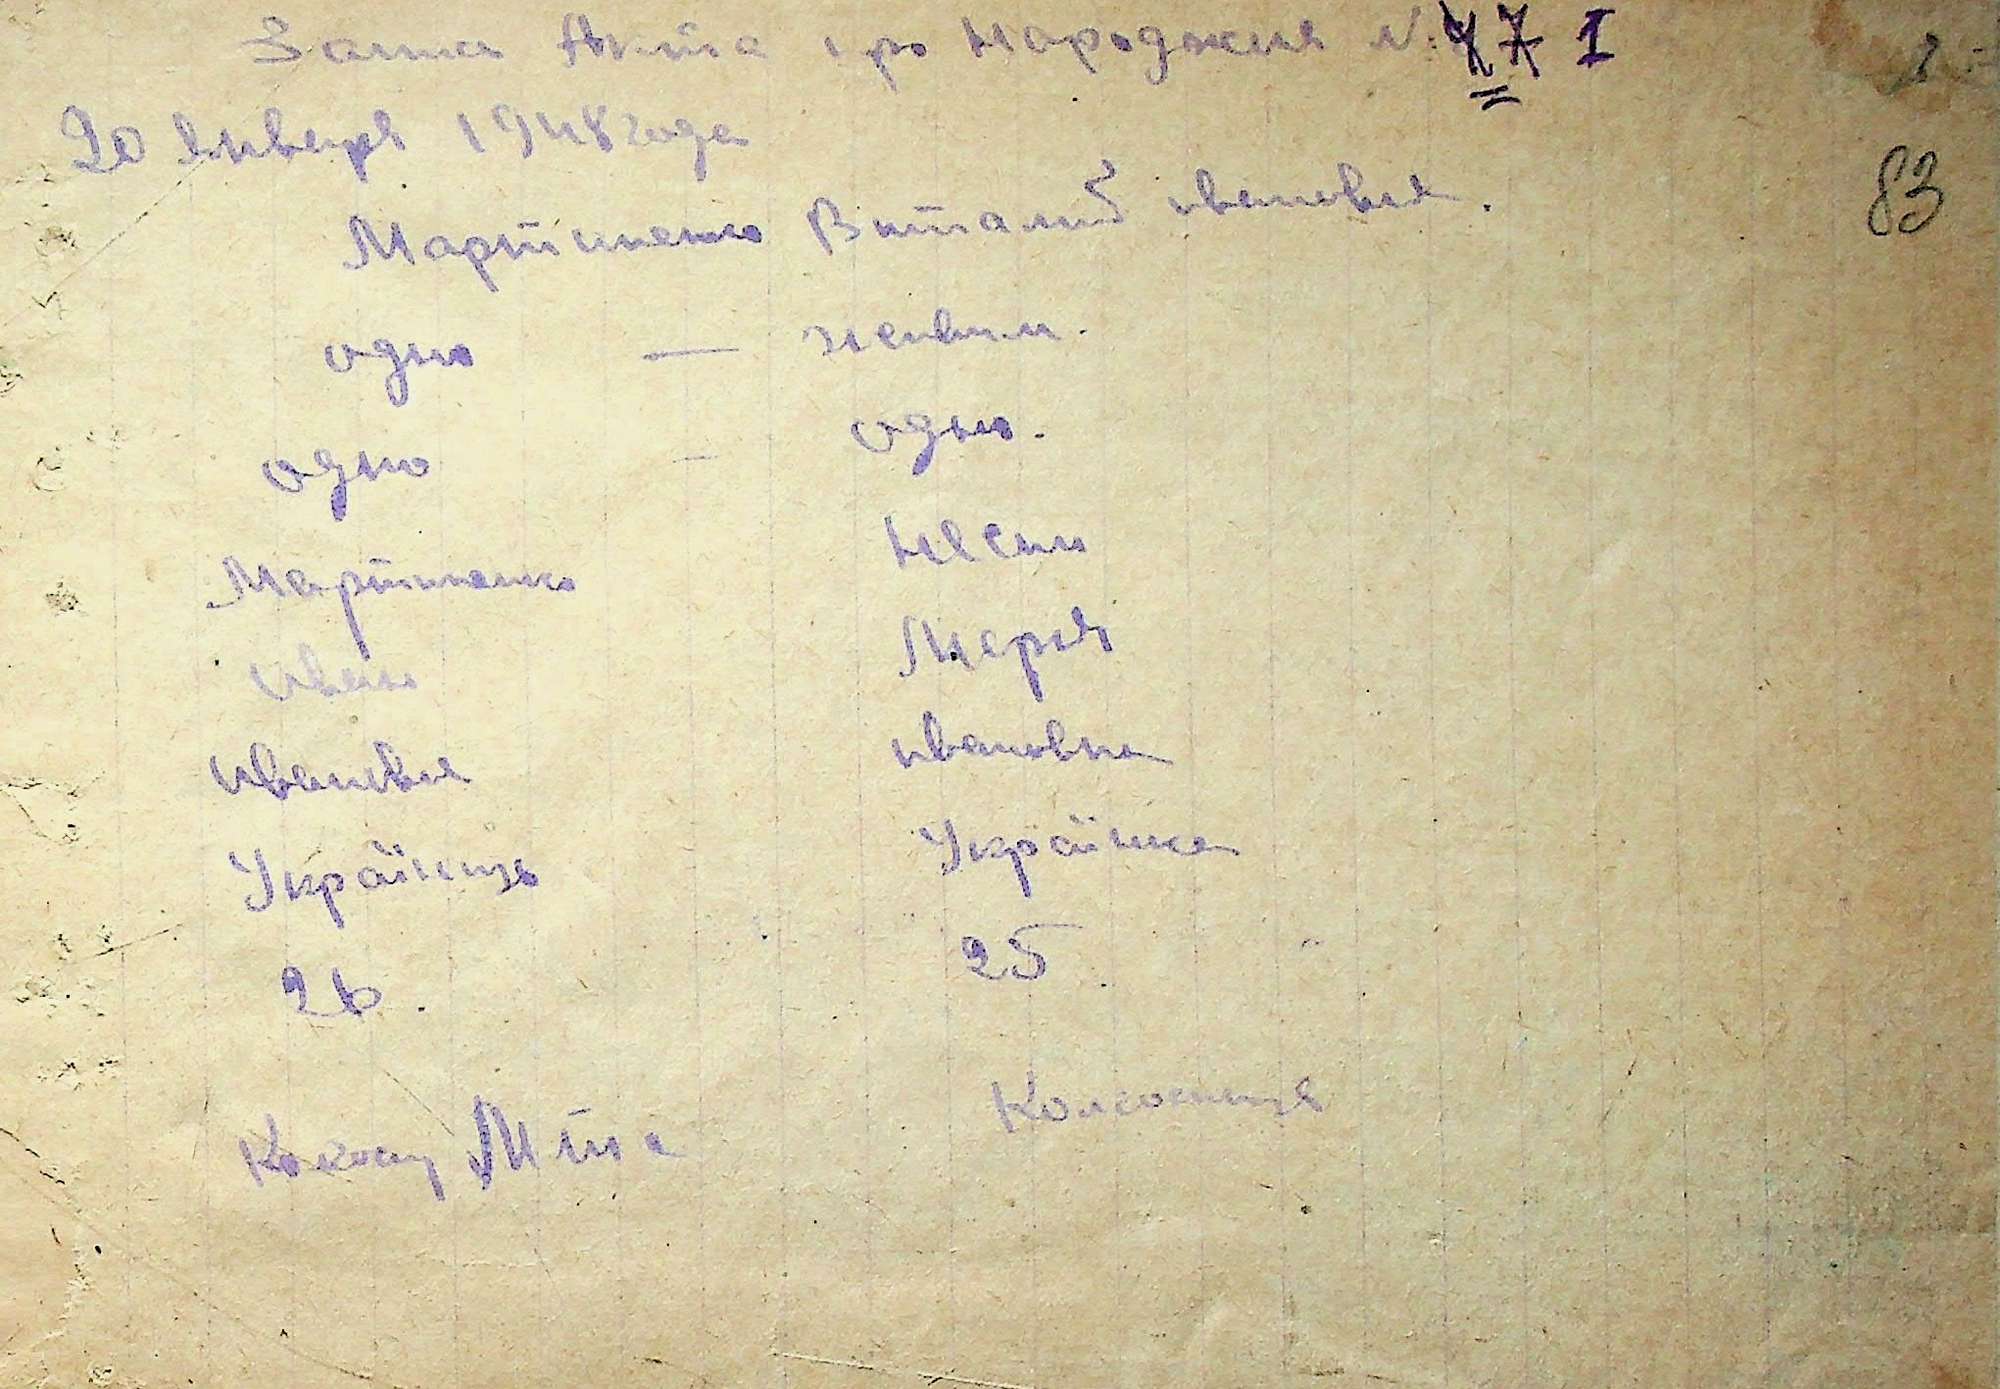 Запис Акта про Народженя №: 1
83
20 Января 1948 года
Мартиненко Виталий ивановия.
одно — живим.
одно - одно.
Мартиненко
Иван Мария
ивановия ивановна
Українць Українка
26. 25
МТС Колгоспниця